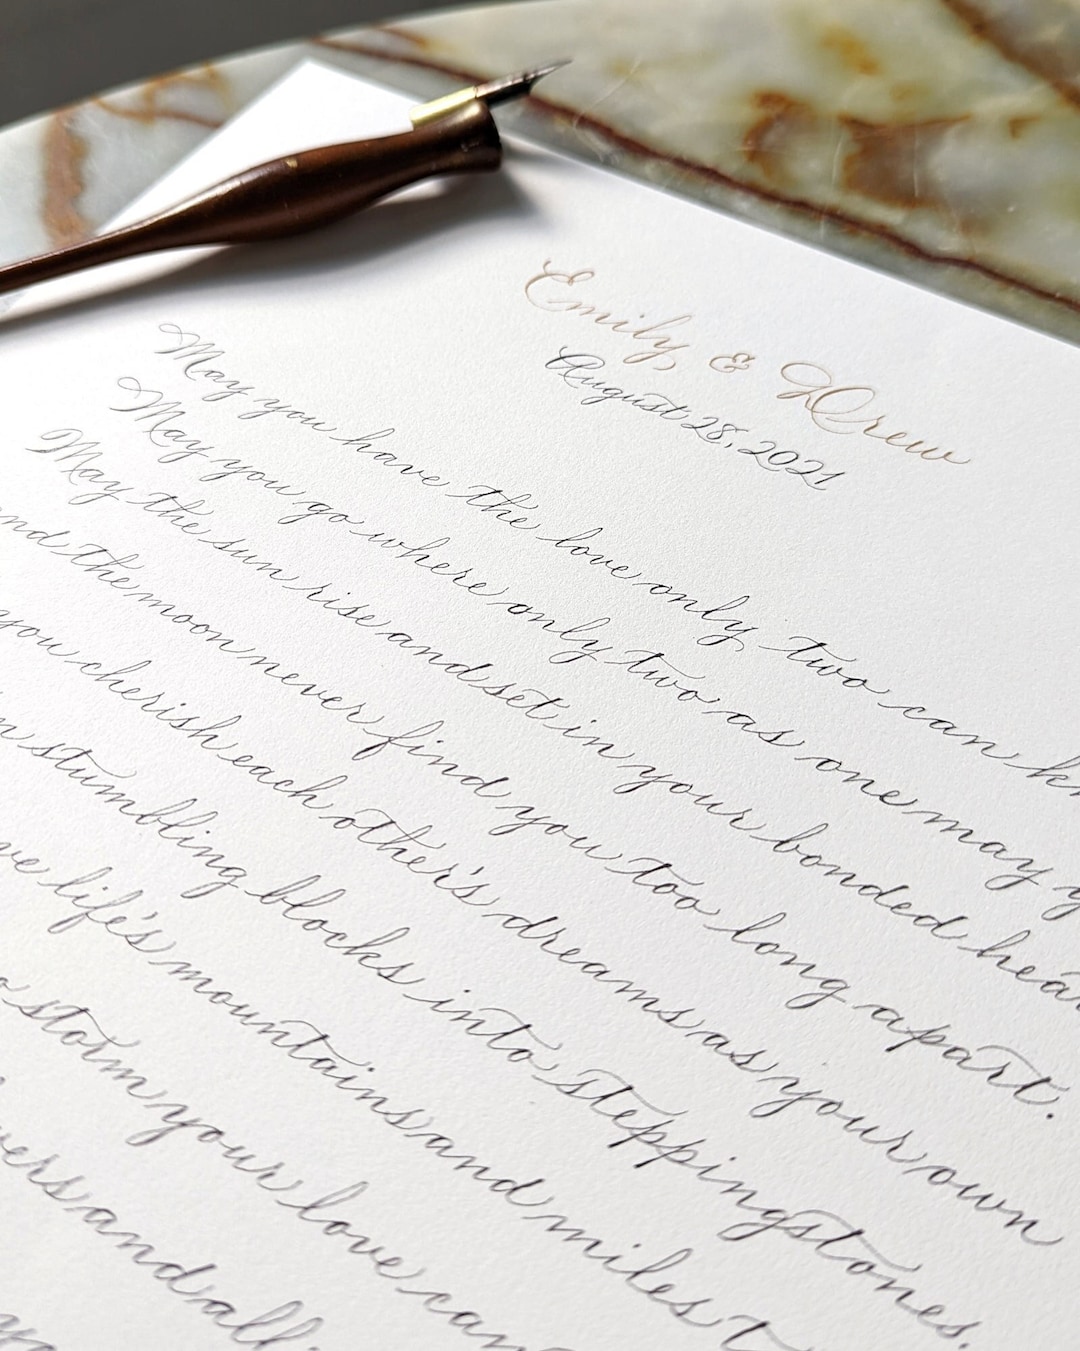 Emily & Drew
August 28, 2021
May you have the love only two can
May you go where only two as one may
May the sun rise and set in your bonded
the moon never find you too long apart.
you cherish each other's dreams as your own
stumbling blocks into steppingstones.
life's mountains and miles
storm your love can
and all